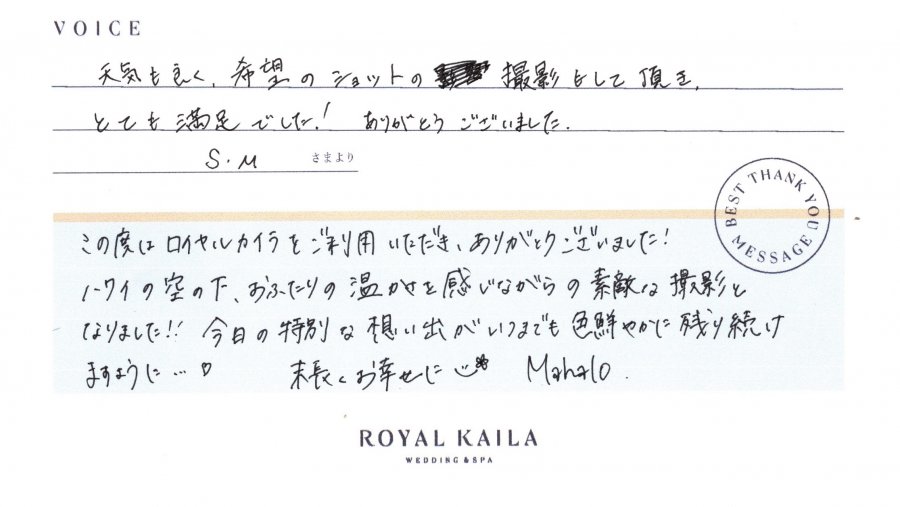 VOICE
天気も良く、希望のショットの 撮影をして頂き、
とても満足でした! ありがとうございました.
S.M さまより
BEST THANK YOU MESSAGE
この度はロイヤルカイラをご利用いただき、ありがとうございました!
ハワイの空の下、おふたりの温かさを感じながらの素敵な撮影と
なりました!! 今日の特別な想い出がいつまでも色鮮やかに残り続け
ますように…♡ 末長くお幸せに Mahalo.
ROYAL KAILA
WEDDING & SPA